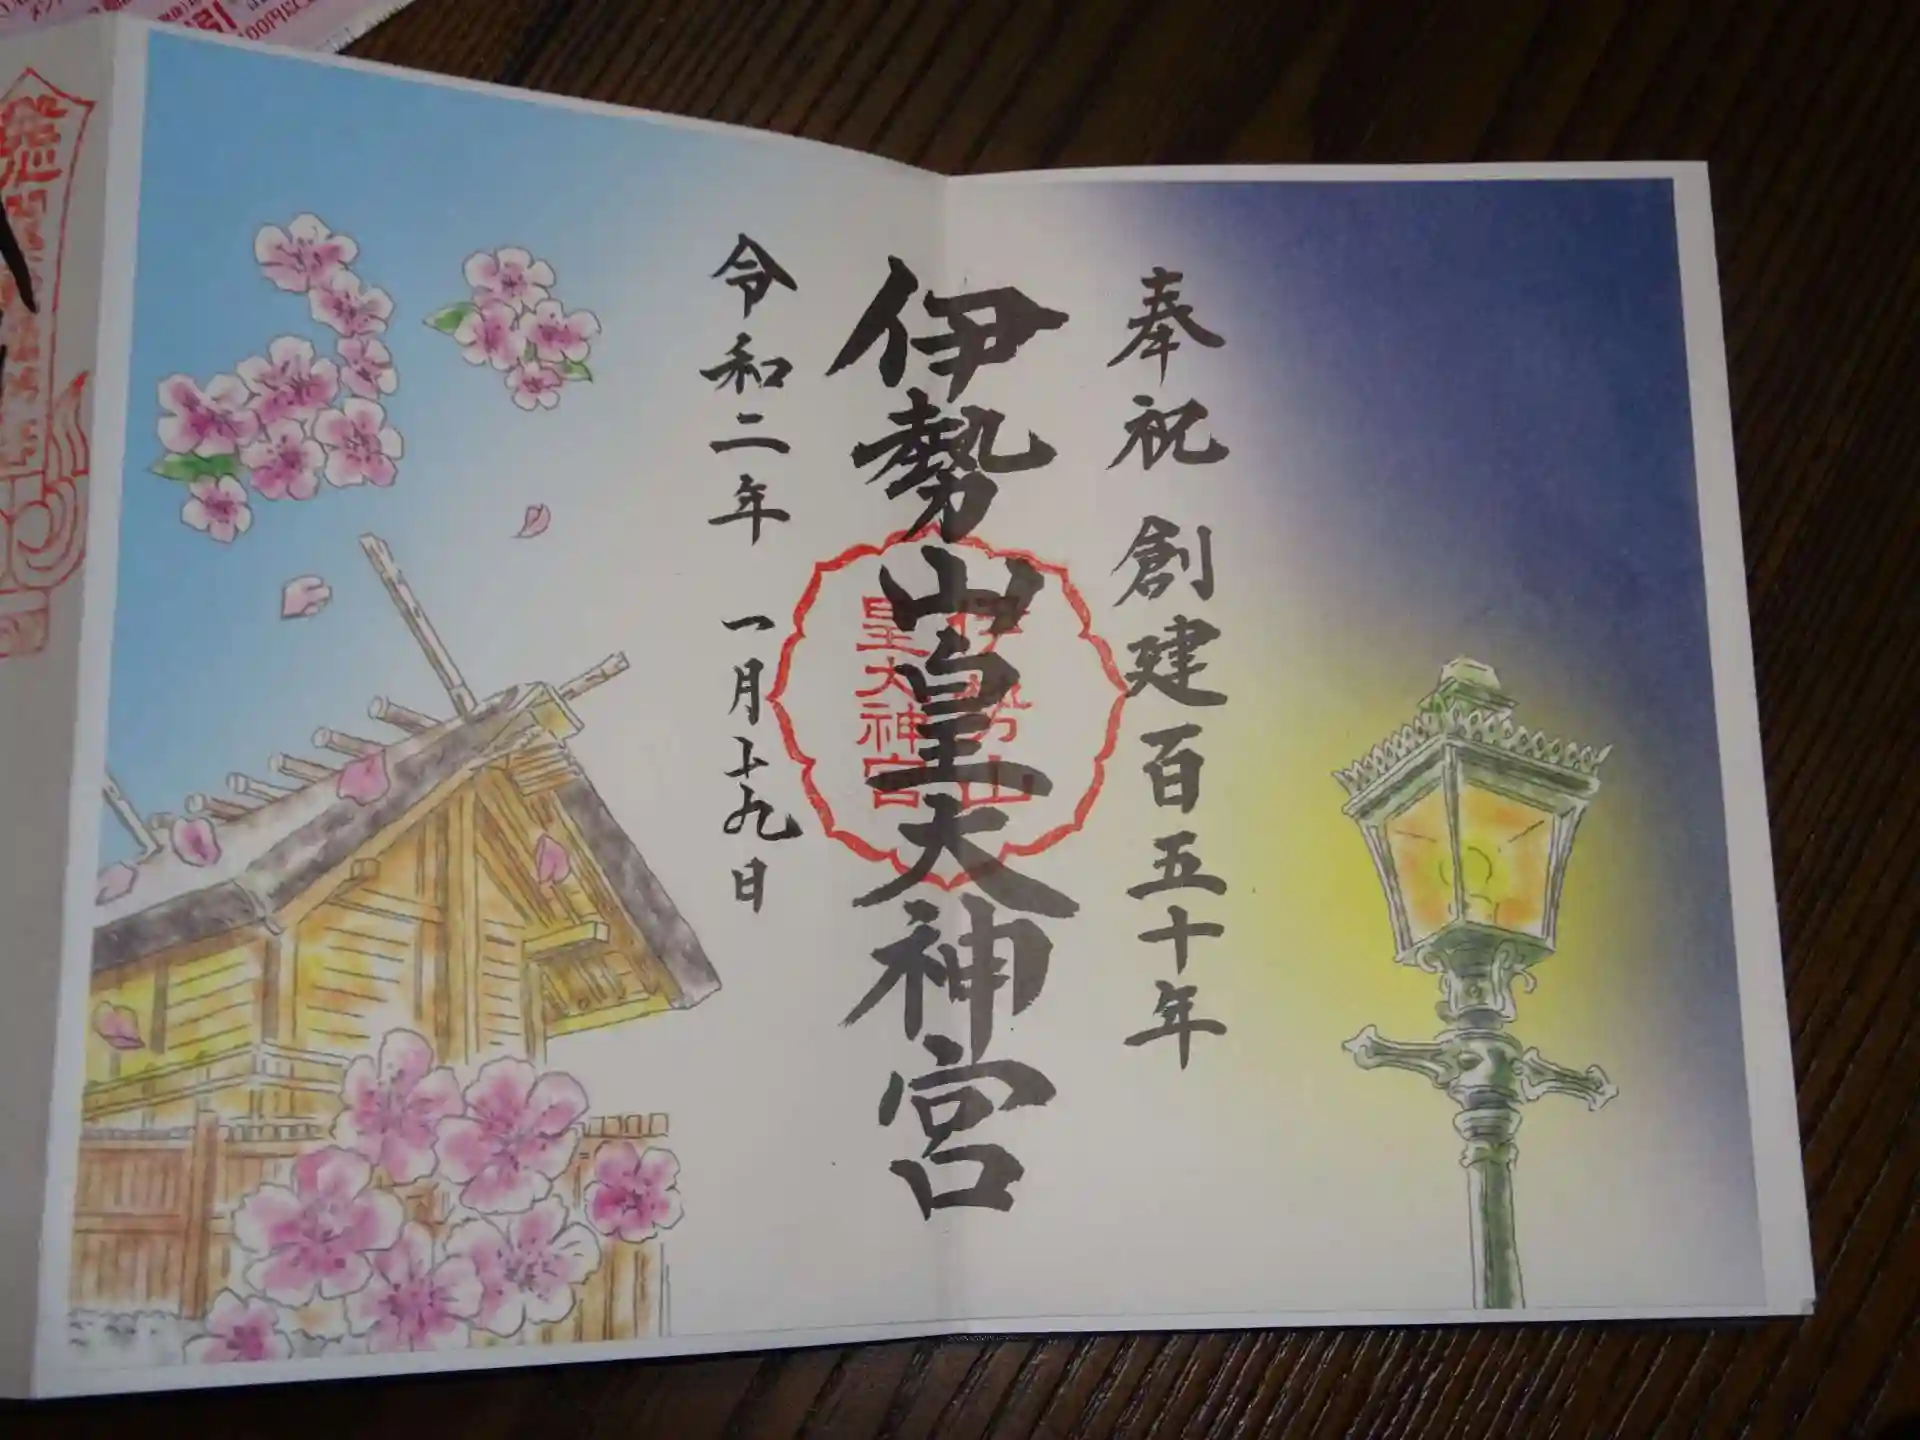 奉祝 創建百五十年
伊勢山皇大神宮
伊勢山
皇大神宮
令和二年 一月十九日